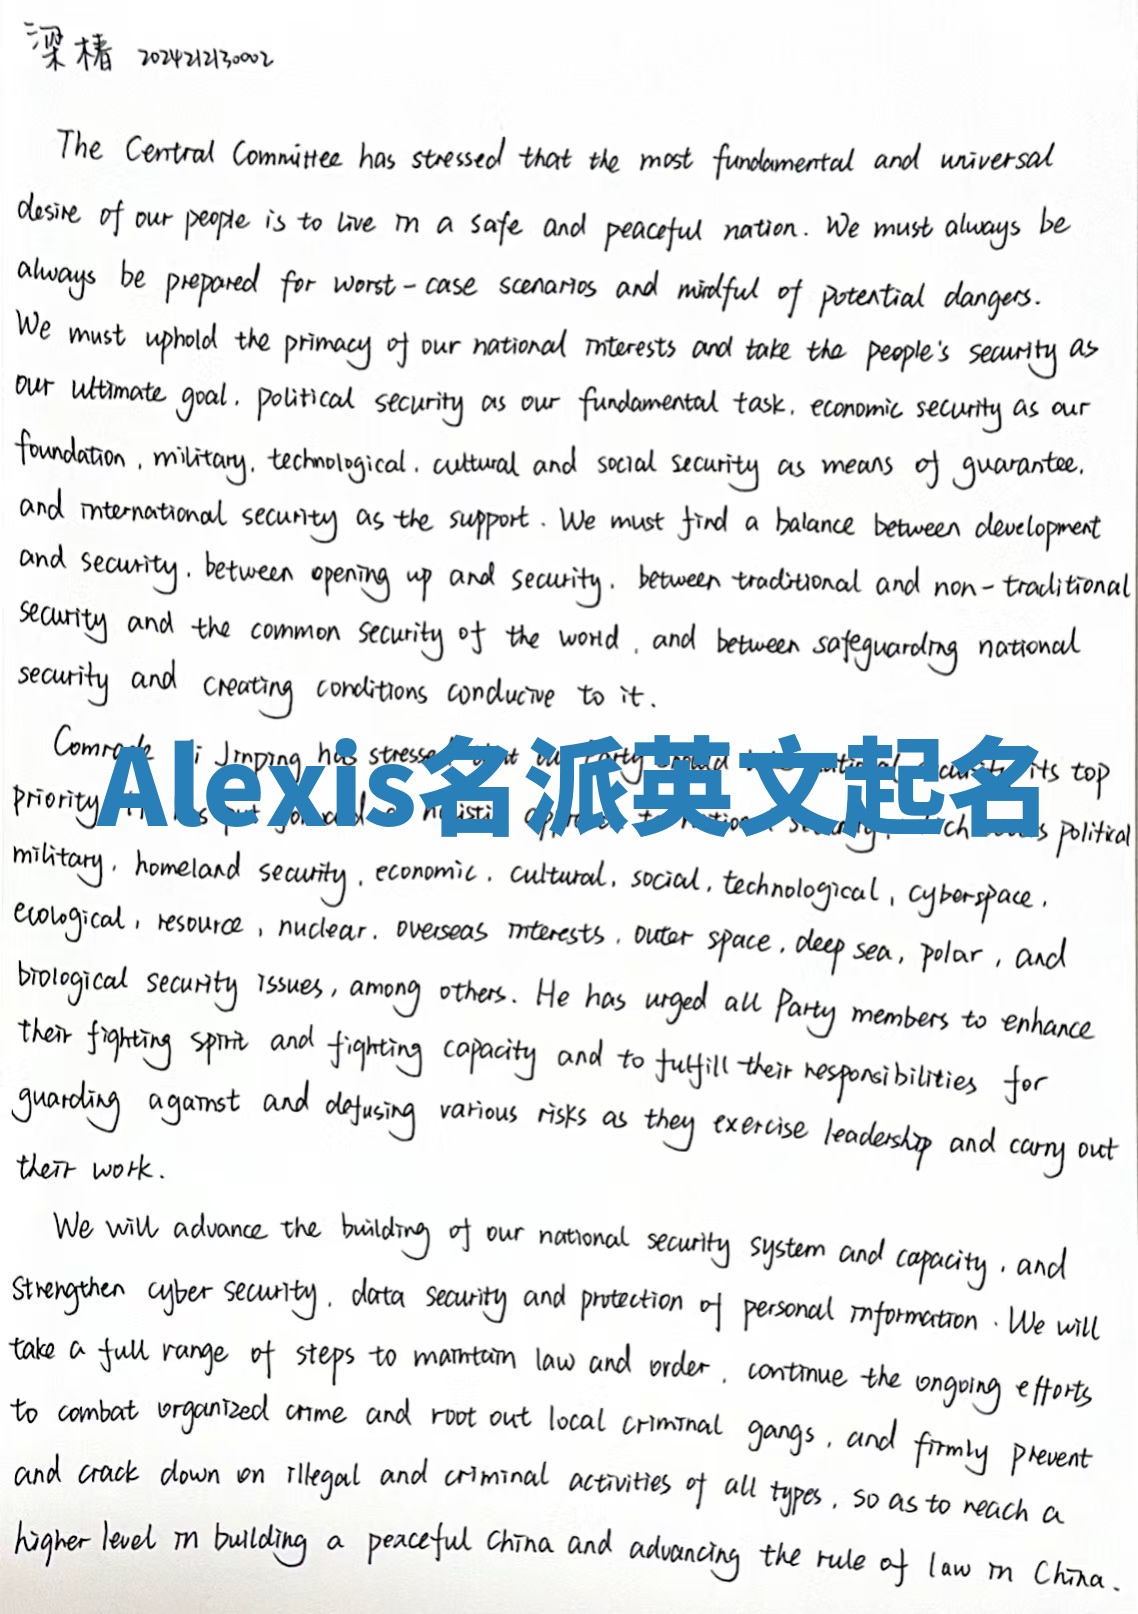 梁椿 2024212130002
The Central Committee has stressed that the most fundamental and universal
desire of our people is to live in a safe and peaceful nation. We must always be
always be prepared for worst-case scenarios and mindful of potential dangers.
We must uphold the primacy of our national interests and take the people's security as
our ultimate goal, political security as our fundamental task, economic security as our
foundation, military, technological, cultural and social security as means of guarantee,
and international security as the support. We must find a balance between development
and security, between opening up and security, between traditional and non-traditional
security and the common security of the world, and between safeguarding national
security and creating conditions conducive to it.
Jinping has its top
Alexis名派英文起名
priority political
military, homeland security, economic, cultural, social, technological, cyberspace,
ecological, resource, nuclear, overseas interests, outer space, deep sea, polar, and
biological security issues, among others. He has urged all Party members to enhance
their fighting spirit and fighting capacity and to fulfill their responsibilities for
guarding against and defusing various risks as they exercise leadership and carry out
their work.
We will advance the building of our national security system and capacity, and
strengthen cyber security, data security and protection of personal information. We will
take a full range of steps to maintain law and order, continue the ongoing efforts
to combat organized crime and root out local criminal gangs, and firmly prevent
and crack down on illegal and criminal activities of all types, so as to reach a
higher level in building a peaceful China and advancing the rule of law in China.